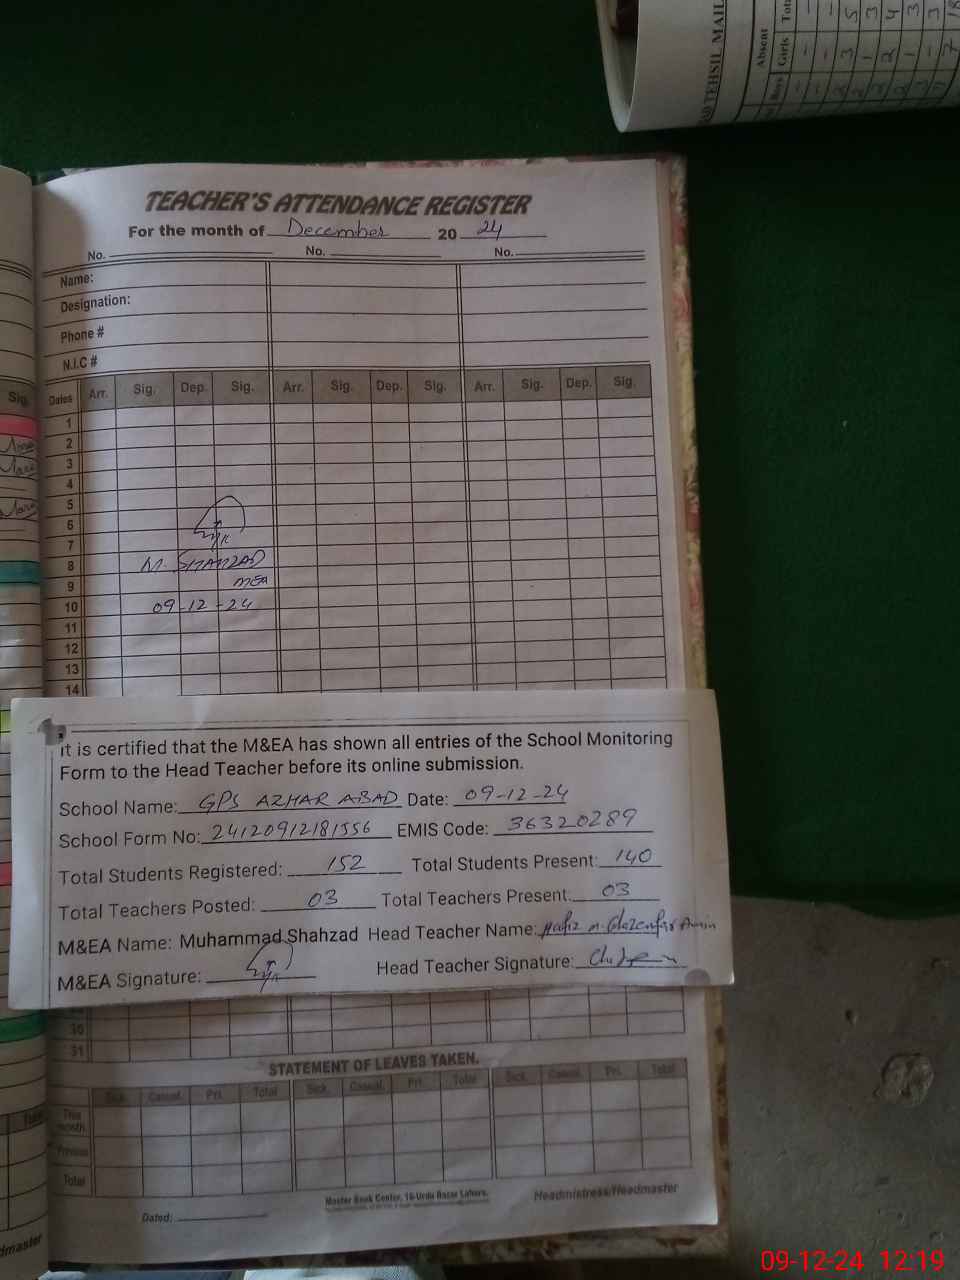 TEHSIL MAIL
Absent
Boys Girls Tot
TEACHER'S ATTENDANCE REGISTER
For the month of December 20 24
No. No. No.
Name:
Designation:
Phone #
N.I.C #
Sig.
Dates Arr. Sig. Dep. Sig. Arr. Sig. Dep. Sig. Arr. Sig. Dep. Sig.
1
2
3
4
5
6
7
8 M. SHAHZAD
9 MEA
10 09-12-24
11
12
13
14
It is certified that the M&EA has shown all entries of the School Monitoring
Form to the Head Teacher before its online submission.
School Name: GPS AZHAR ABAD Date: 09-12-24
School Form No: 24120912181556 EMIS Code: 36320289
Total Students Registered: 152 Total Students Present: 140
Total Teachers Posted: 03 Total Teachers Present: 03
M&EA Name: Muhammad Shahzad Head Teacher Name: Hafiz M. Ghazenfar Amin
M&EA Signature: Head Teacher Signature:
30
31
STATEMENT OF LEAVES TAKEN.
Sick. Casual. Pri. Total Sick. Casual. Pri. Total Sick. Casual. Pri. Total
This month
Previous
Total
Master Book Center, 16-Urdu Bazar Lahore.
Headmistress/Headmaster
Dated:
dmaster
09-12-24 12:19